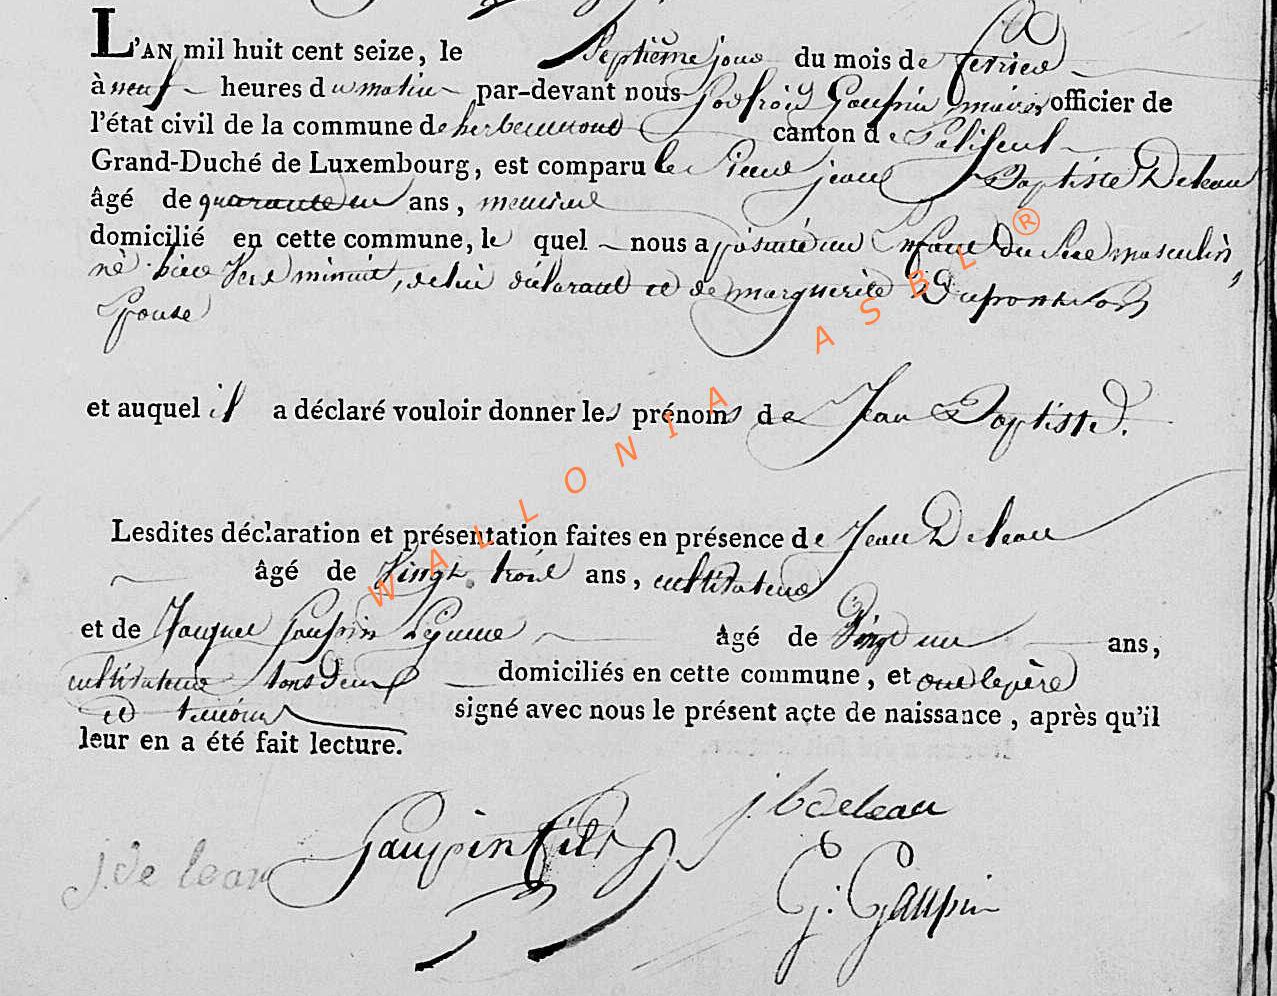 L'AN mil huit cent seize, le Septième jour du mois de fevrier
à neuf heures du matin par-devant nous Godfroid Gaupin maire officier de
l'état civil de la commune de herbeumont canton de Paliseul
Grand-Duché de Luxembourg, est comparu le Sieur jean Baptiste Deleau
âgé de quarante un ans, meunier
domicilié en cette commune, le quel nous a présenté un Enfant du Sexe masculin,
né hier Vers minuit, de lui déclarant et de marguerite Dupont Son
Epouse
et auquel il a déclaré vouloir donner les prénoms de Jean Baptiste.
Lesdites déclaration et présentation faites en présence de Jean Deleau
âgé de Vingt trois ans, cultivateur
et de Jacques Gaupin Le jeune âgé de Vingt un ans,
cultivateur tous deux domiciliés en cette commune, et ont le père
et temoins signé avec nous le présent acte de naissance, après qu'il
leur en a été fait lecture.
j b deleau
Gaupin fils
j. de lean
G. Gaupin
WALLONIA ASBL ®